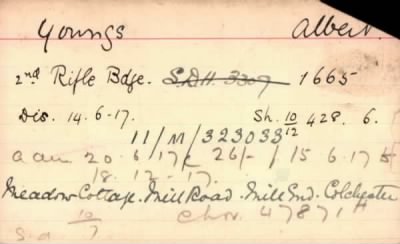 Youngs Albert
2nd Rifle Bdge. S.D.H. 3307 1665
Dis. 14.6-17. Sh. 10/12 428. 6.
11/M/323033
a au 20.6.17 26/- 15 6.17 to
18.12-17.
Meadow Cottage. Mill Road. Mill End. Colchester
10/7 47871